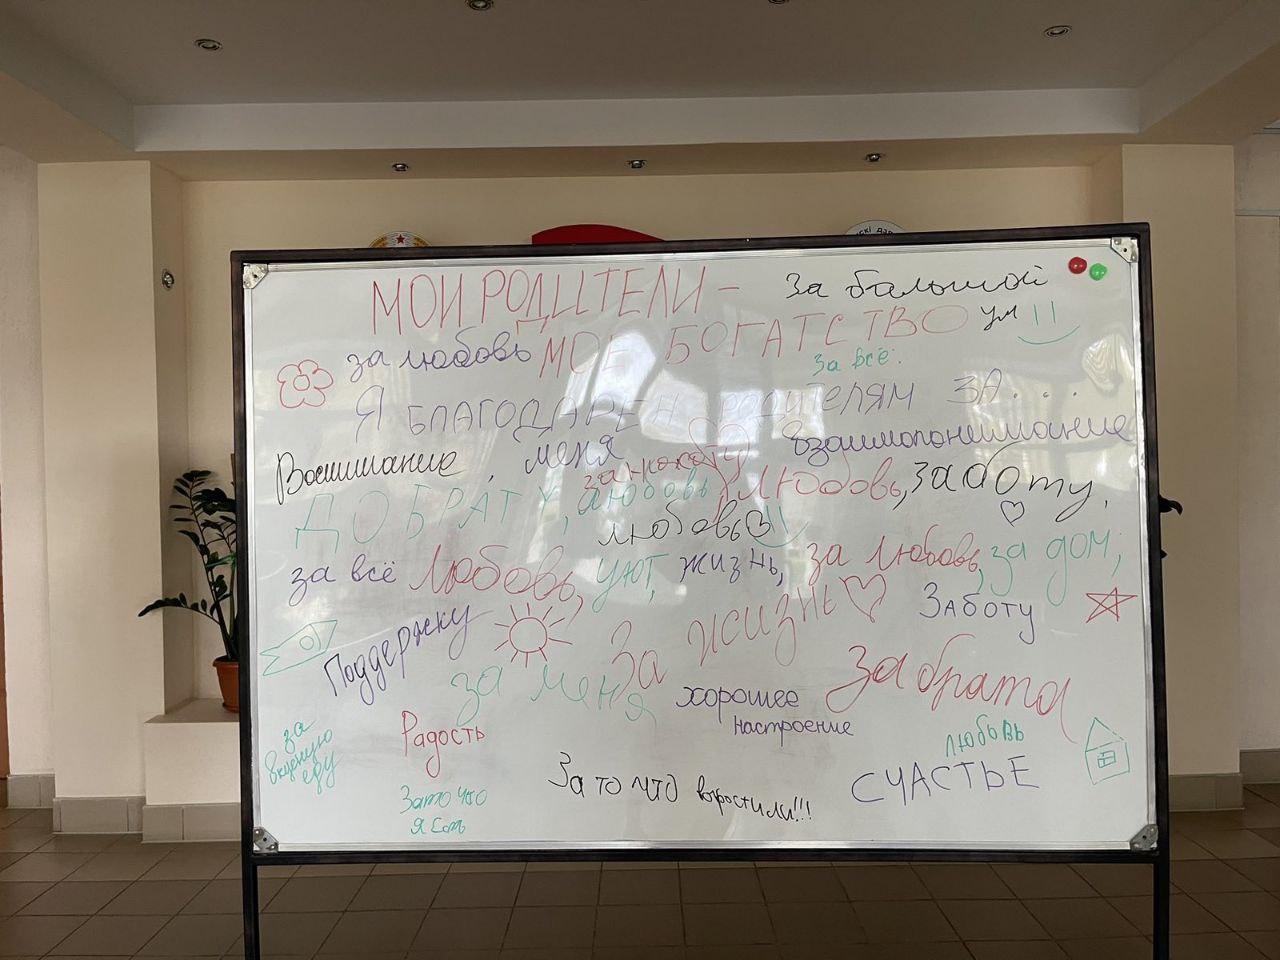 МОИ РОДИТЕЛИ – За большой
за любовь МОЁ БОГАТСТВО ум
за всё.
Я БЛАГОДАРЕН РОДИТЕЛЯМ ЗА...
Воспитание, меня взаимопонимание
ДОБРАТУ, любовь, любовь, заботу,
любовь
за всё любовь, уют, жизнь, за любовь, за дом;
Поддержку За жизнь Заботу
за меня хорошее За брата
за Радость настроение любовь
вкусную
еду
За то что За то что выростили!!! СЧАСТЬЕ
я есть